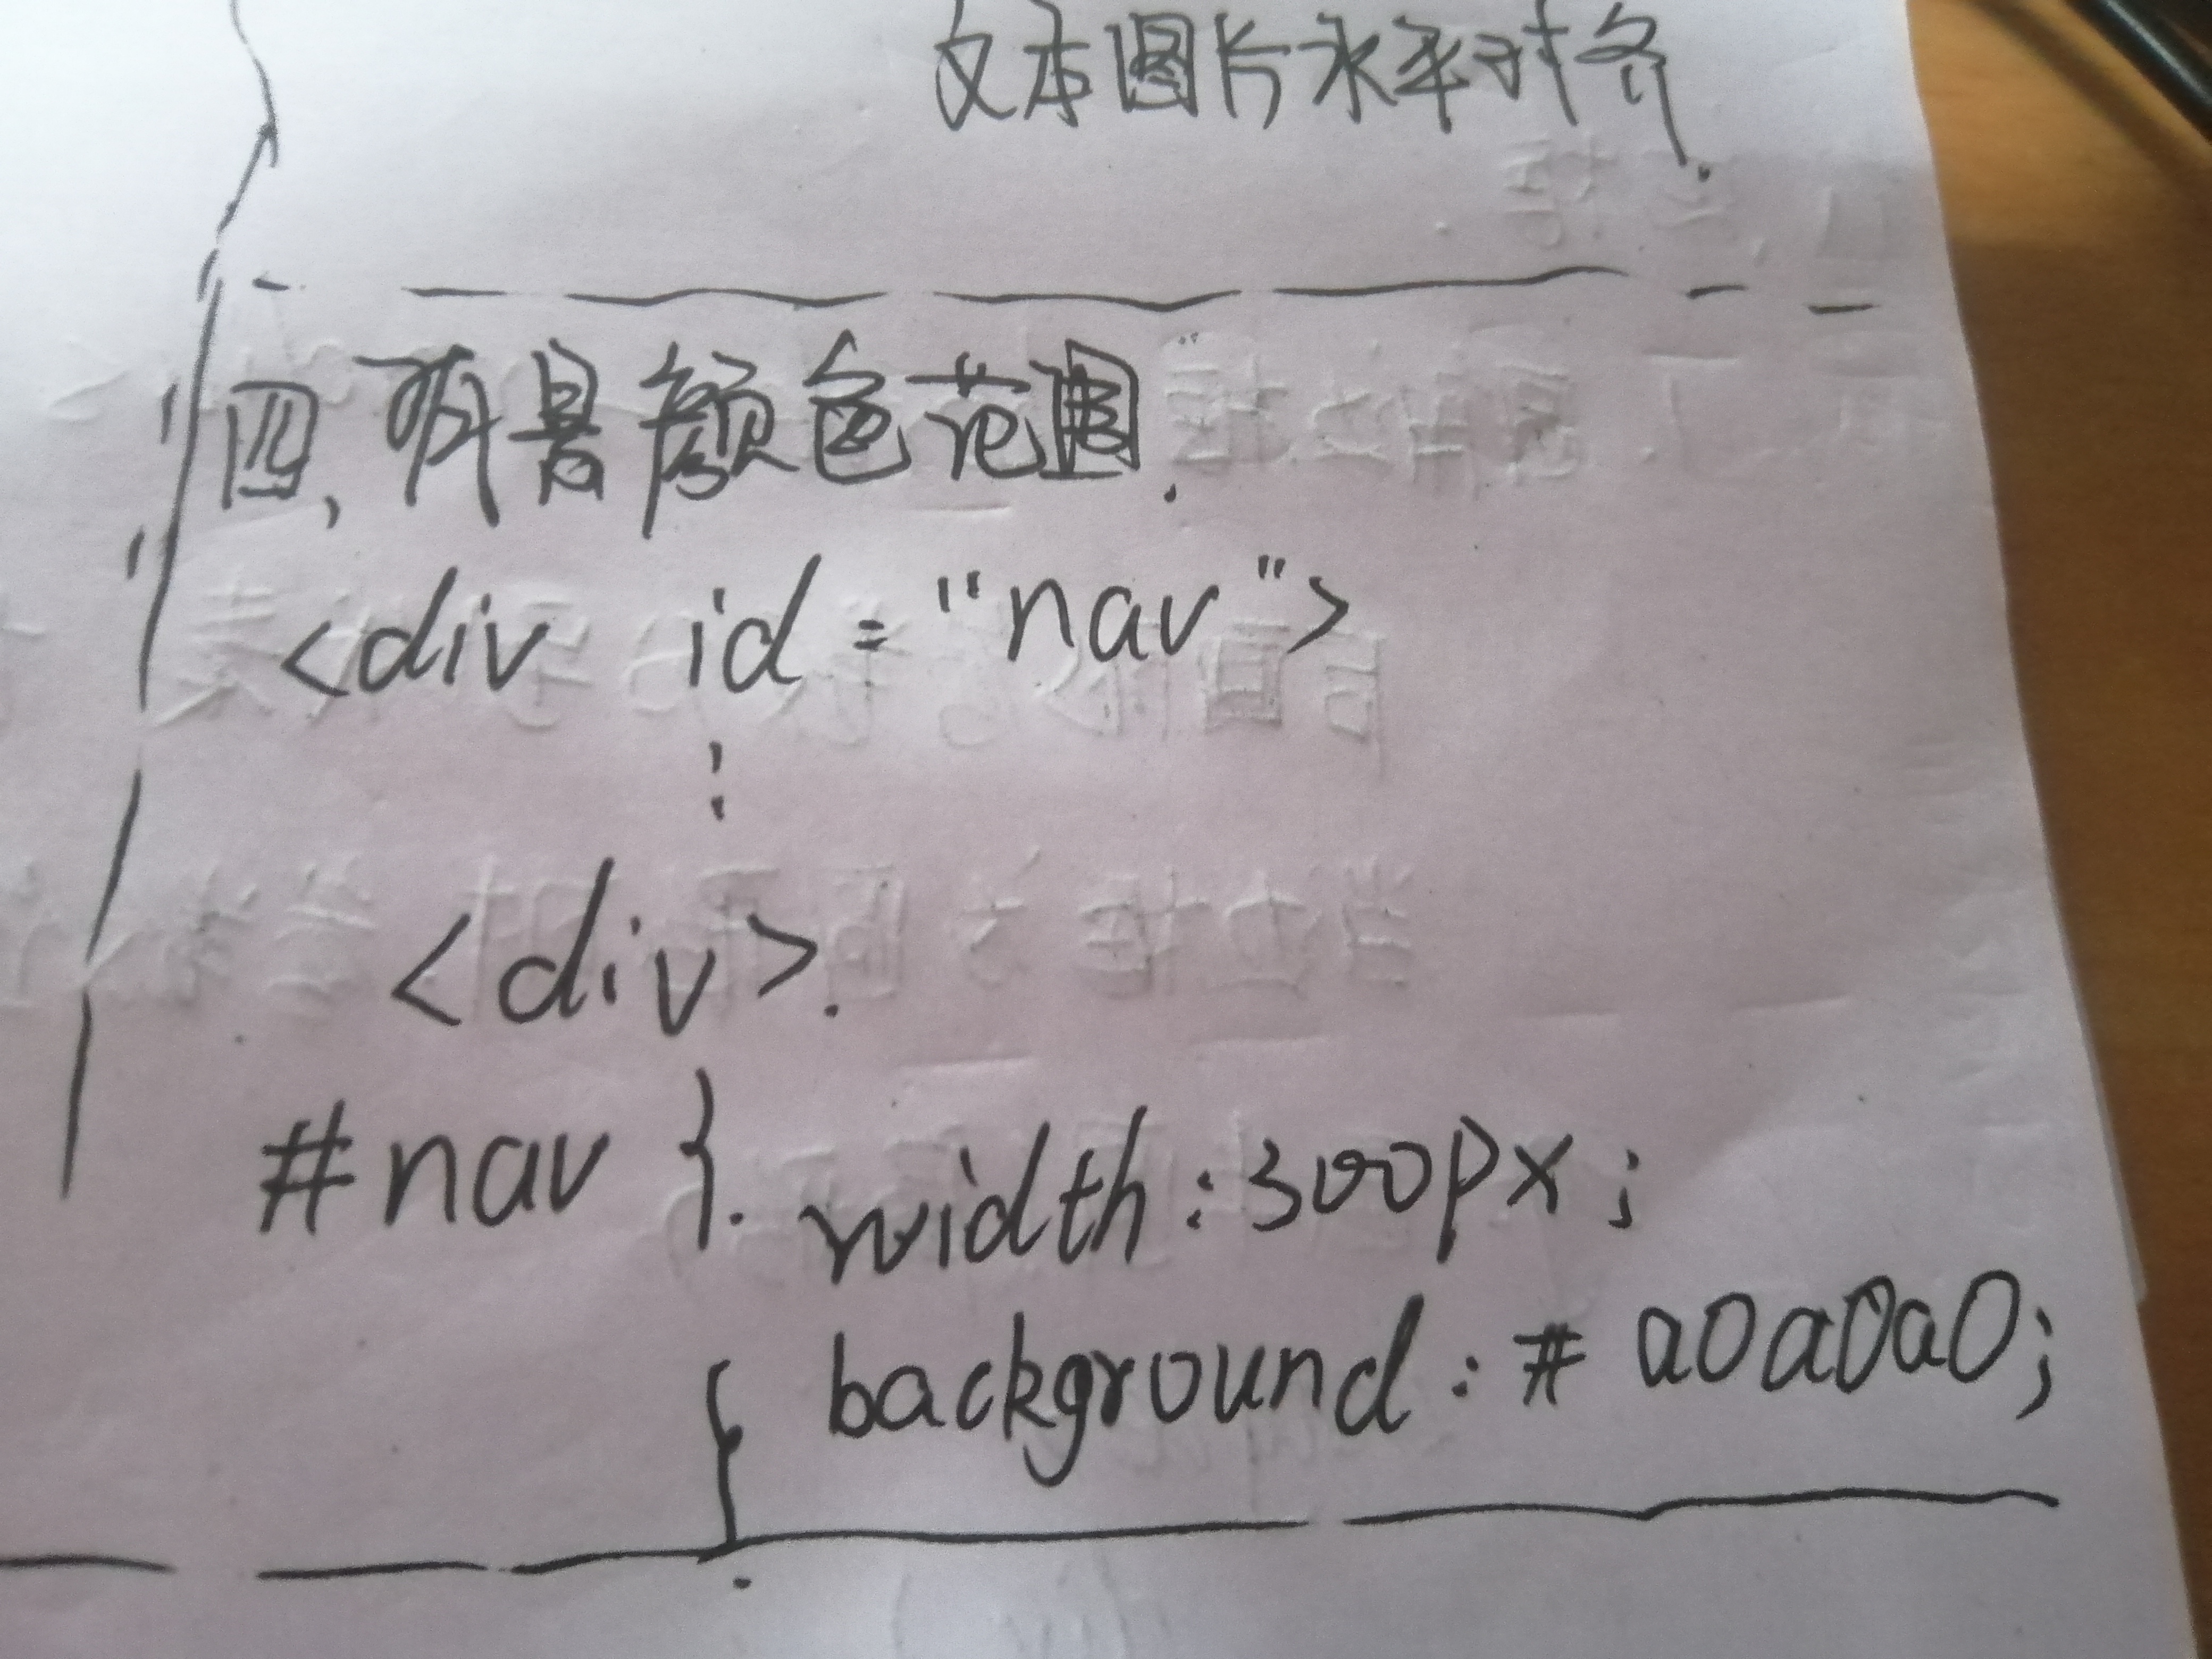 文本图片水平对齐.
四、背景颜色范围.
<div id="nav">
:
<div>.
#nav }. width:300px;
background:#a0a0a0;
{